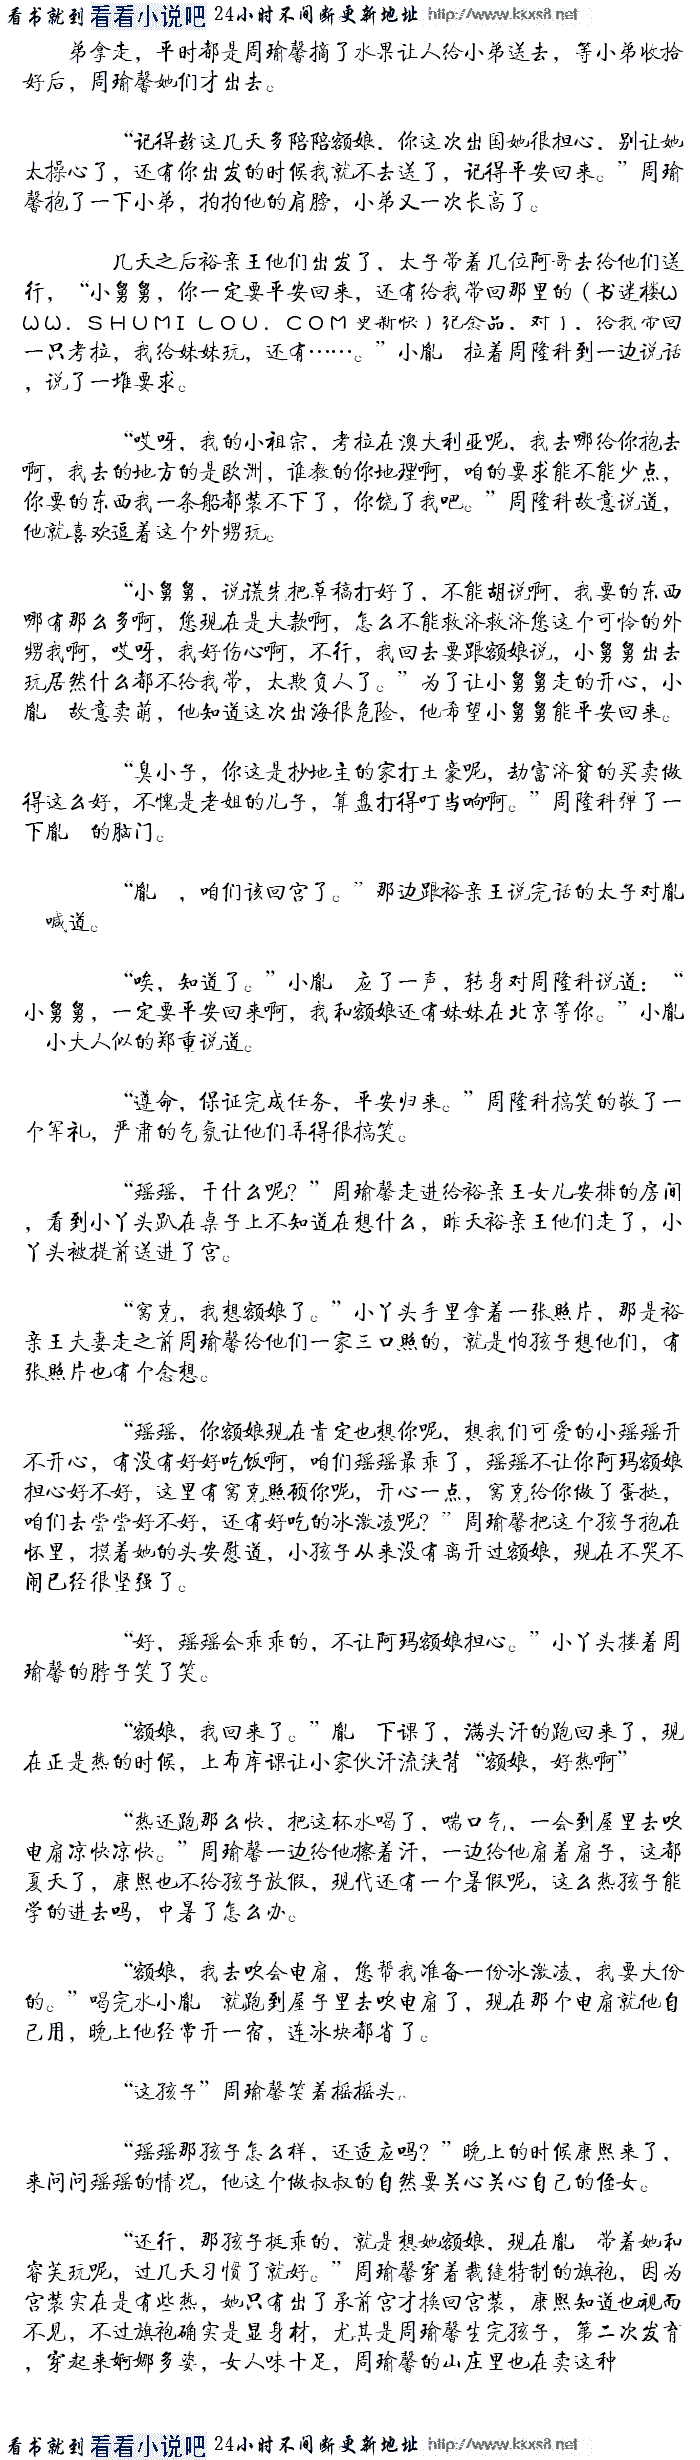 看书就到 看看小说吧 24小时不间断更新地址 http://www.kkxs8.net
弟拿走，平时都是周瑜馨摘了水果让人给小弟送去，等小弟收拾
好后，周瑜馨她们才出去。
“记得趁这几天多陪陪额娘．你这次出国她很担心．别让她
太操心了，还有你出发的时候我就不去送了，记得平安回来。”周瑜
馨抱了一下小弟，拍拍他的肩膀，小弟又一次长高了。
几天之后裕亲王他们出发了，太子带着几位阿哥去给他们送
行，“小舅舅，你一定要平安回来，还有给我带回那里的（书迷楼Ｗ
ＷＷ．ＳＨＵＭＩＬＯＵ．ＣＯＭ更新快）纪念品．对了．给我带回
一只考拉，我给妹妹玩，还有……。”小胤　拉着周隆科到一边说话
，说了一堆要求。
“哎呀，我的小祖宗，考拉在澳大利亚呢，我去哪给你抱去
啊，我去的地方的是欧洲，谁教的你地理啊，咱的要求能不能少点，
你要的东西我一条船都装不下了，你饶了我吧。”周隆科故意说道，
他就喜欢逗着这个外甥玩。
“小舅舅，说谎先把草稿打好了，不能胡说啊，我要的东西
哪有那么多啊，您现在是大款啊，怎么不能救济救济您这个可怜的外
甥我啊，哎呀，我好伤心啊，不行，我回去要跟额娘说，小舅舅出去
玩居然什么都不给我带，太欺负人了。”为了让小舅舅走的开心，小
胤　故意卖萌，他知道这次出海很危险，他希望小舅舅能平安回来。
“臭小子，你这是抄地主的家打土豪呢，劫富济贫的买卖做
得这么好，不愧是老姐的儿子，算盘打得叮当响啊。”周隆科弹了一
下胤　的脑门。
“胤　，咱们该回宫了。”那边跟裕亲王说完话的太子对胤
　喊道。
“唉，知道了。”小胤　应了一声，转身对周隆科说道：“
小舅舅，一定要平安回来啊，我和额娘还有妹妹在北京等你。”小胤
　小大人似的郑重说道。
“遵命，保证完成任务，平安归来。”周隆科搞笑的敬了一
个军礼，严肃的气氛让他们弄得很搞笑。
“瑶瑶，干什么呢？”周瑜馨走进给裕亲王女儿安排的房间
，看到小丫头趴在桌子上不知道在想什么，昨天裕亲王他们走了，小
丫头被提前送进了宫。
“窝克，我想额娘了。”小丫头手里拿着一张照片，那是裕
亲王夫妻走之前周瑜馨给他们一家三口照的，就是怕孩子想他们，有
张照片也有个念想。
“瑶瑶，你额娘现在肯定也想你呢，想我们可爱的小瑶瑶开
不开心，有没有好好吃饭啊，咱们瑶瑶最乖了，瑶瑶不让你阿玛额娘
担心好不好，这里有窝克照顾你呢，开心一点，窝克给你做了蛋挞，
咱们去尝尝好不好，还有好吃的冰激凌呢？”周瑜馨把这个孩子抱在
怀里，摸着她的头安慰道，小孩子从来没有离开过额娘，现在不哭不
闹已经很坚强了。
“好，瑶瑶会乖乖的，不让阿玛额娘担心。”小丫头搂着周
瑜馨的脖子笑了笑。
“额娘，我回来了。”胤　下课了，满头汗的跑回来了，现
在正是热的时候，上布库课让小家伙汗流浃背“额娘，好热啊”
“热还跑那么快，把这杯水喝了，喘口气，一会到屋里去吹
电扇凉快凉快。”周瑜馨一边给他擦着汗，一边给他扇着扇子，这都
夏天了，康熙也不给孩子放假，现代还有一个暑假呢，这么热孩子能
学的进去吗，中暑了怎么办。
“额娘，我去吹会电扇，您帮我准备一份冰激凌，我要大份
的。”喝完水小胤　就跑到屋子里去吹电扇了，现在那个电扇就他自
己用，晚上他经常开一宿，连冰块都省了。
“这孩子”周瑜馨笑着摇摇头。
“瑶瑶那孩子怎么样，还适应吗？”晚上的时候康熙来了，
来问问瑶瑶的情况，他这个做叔叔的自然要关心关心自己的侄女。
“还行，那孩子挺乖的，就是想她额娘，现在胤　带着她和
睿芙玩呢，过几天习惯了就好。”周瑜馨穿着裁缝特制的旗袍，因为
宫装实在是有些热，她只有出了承前宫才换回宫装，康熙知道也视而
不见，不过旗袍确实是显身材，尤其是周瑜馨生完孩子，第二次发育
，穿起来婀娜多姿，女人味十足，周瑜馨的山庄里也在卖这种
看书就到 看看小说吧 24小时不间断更新地址 http://www.kkxs8.net